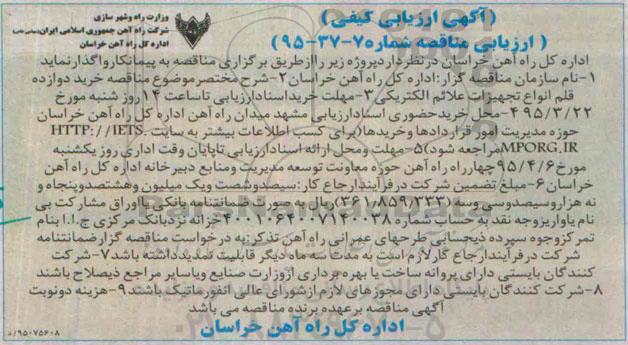 (آگهی ارزیابی کیفی)
(ارزیابی مناقصه شماره۷-۳۷-۹۵)
وزارت راه وشهر سازی
شرکت راه آهن جمهوری اسلامی ایران
اداره کل راه آهن خراسان
اداره کل راه آهن خراسان درنظرداردپروژه زیر راازطریق برگزاری مناقصه به پیمانکارواگذارنماید
۱-نام سازمان مناقصه گزار:اداره کل راه آهن خراسان۲-شرح مختصرموضوع مناقصه خرید دوازده
قلم انواع تجهیزات علائم الکتریکی۳-مهلت خریداسنادارزیابی تاساعت ۱۴روز شنبه مورخ
۹۵/۳/۲۲-۴محل خریدحضوری اسنادارزیابی مشهد میدان راه آهن اداره کل راه آهن خراسان
حوزه مدیریت امور قراردادها وخریدها(برای کسب اطلاعات بیشتر به سایت HTTP://IETS.
MPORG.IRمراجعه شود)۵-مهلت ومحل ارائه اسنادارزیابی تاپایان وقت اداری روز یکشنبه
مورخ۹۵/۴/۶چهارراه راه آهن حوزه معاونت توسعه مدیریت ومنابع دبیرخانه اداره کل راه آهن
خراسان۶-مبلغ تضمین شرکت درفرآیندارجاع کار:سیصدوشصت ویک میلیون وهشتصدوپنجاه و
نه هزاروسیصدوسی وسه (۳۶۱,۸۵۹,۳۳۳)ریال به صورت ضمانتنامه بانکی یااوراق مشارکت بی
نام یاواریزوجه نقد به حساب شماره ۴۰۰۱۰۶۴۰۰۷۱۴۰۰۳۸خزانه نزدبانک مرکزی ج.ا.ا بنام
تمرکزوجوه سپرده ذیحسابی طرحهای عمرانی راه آهن تذکر:به درخواست مناقصه گزارضمانتنامه
شرکت درفرآیندارجاع کارلازم است به مدت سه ماه دیگر قابلیت تمدیدداشته باشد۷-شرکت
کنندگان بایستی دارای پروانه ساخت یا بهره برداری ازوزارت صنایع ویاسایر مراجع ذیصلاح باشند
۸-شرکت کنندگان بایستی دارای مجوزهای لازم ازشورای عالی انفورماتیک باشند۹-هزینه دونوبت
آگهی مناقصه برعهده برنده مناقصه می باشد
اداره کل راه آهن خراسان
۹۵۰۷۵۶۰۸/د